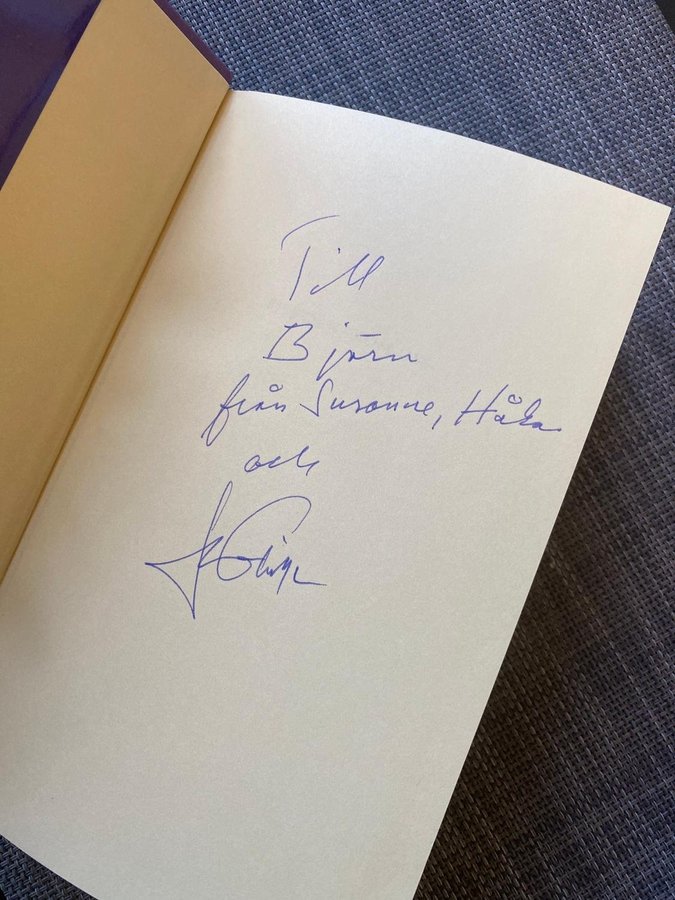 Till
Björn
från Susanne, Håkan
och